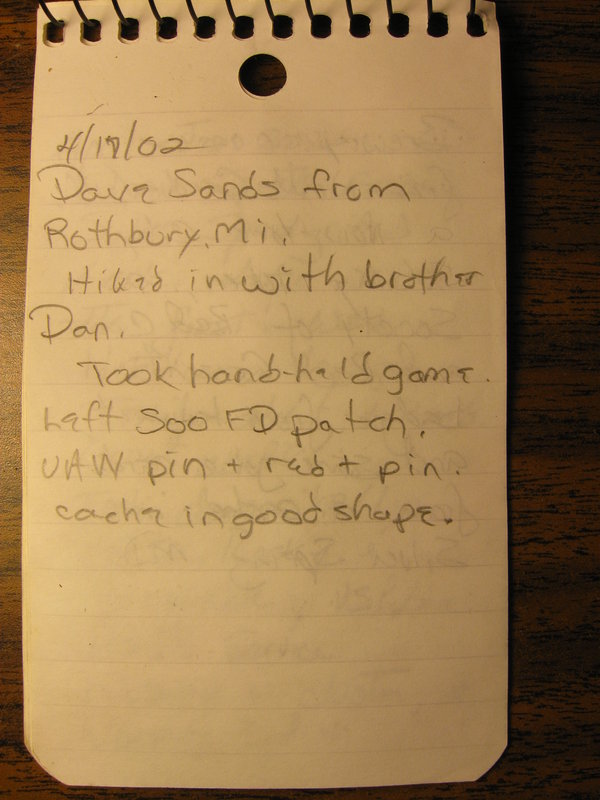 4/17/02
Dave Sands from
Rothbury, Mi.
Hiked in with brother
Dan.
Took hand-held game.
Left Soo FD patch,
UAW pin + red + pin.
cache in good shape.